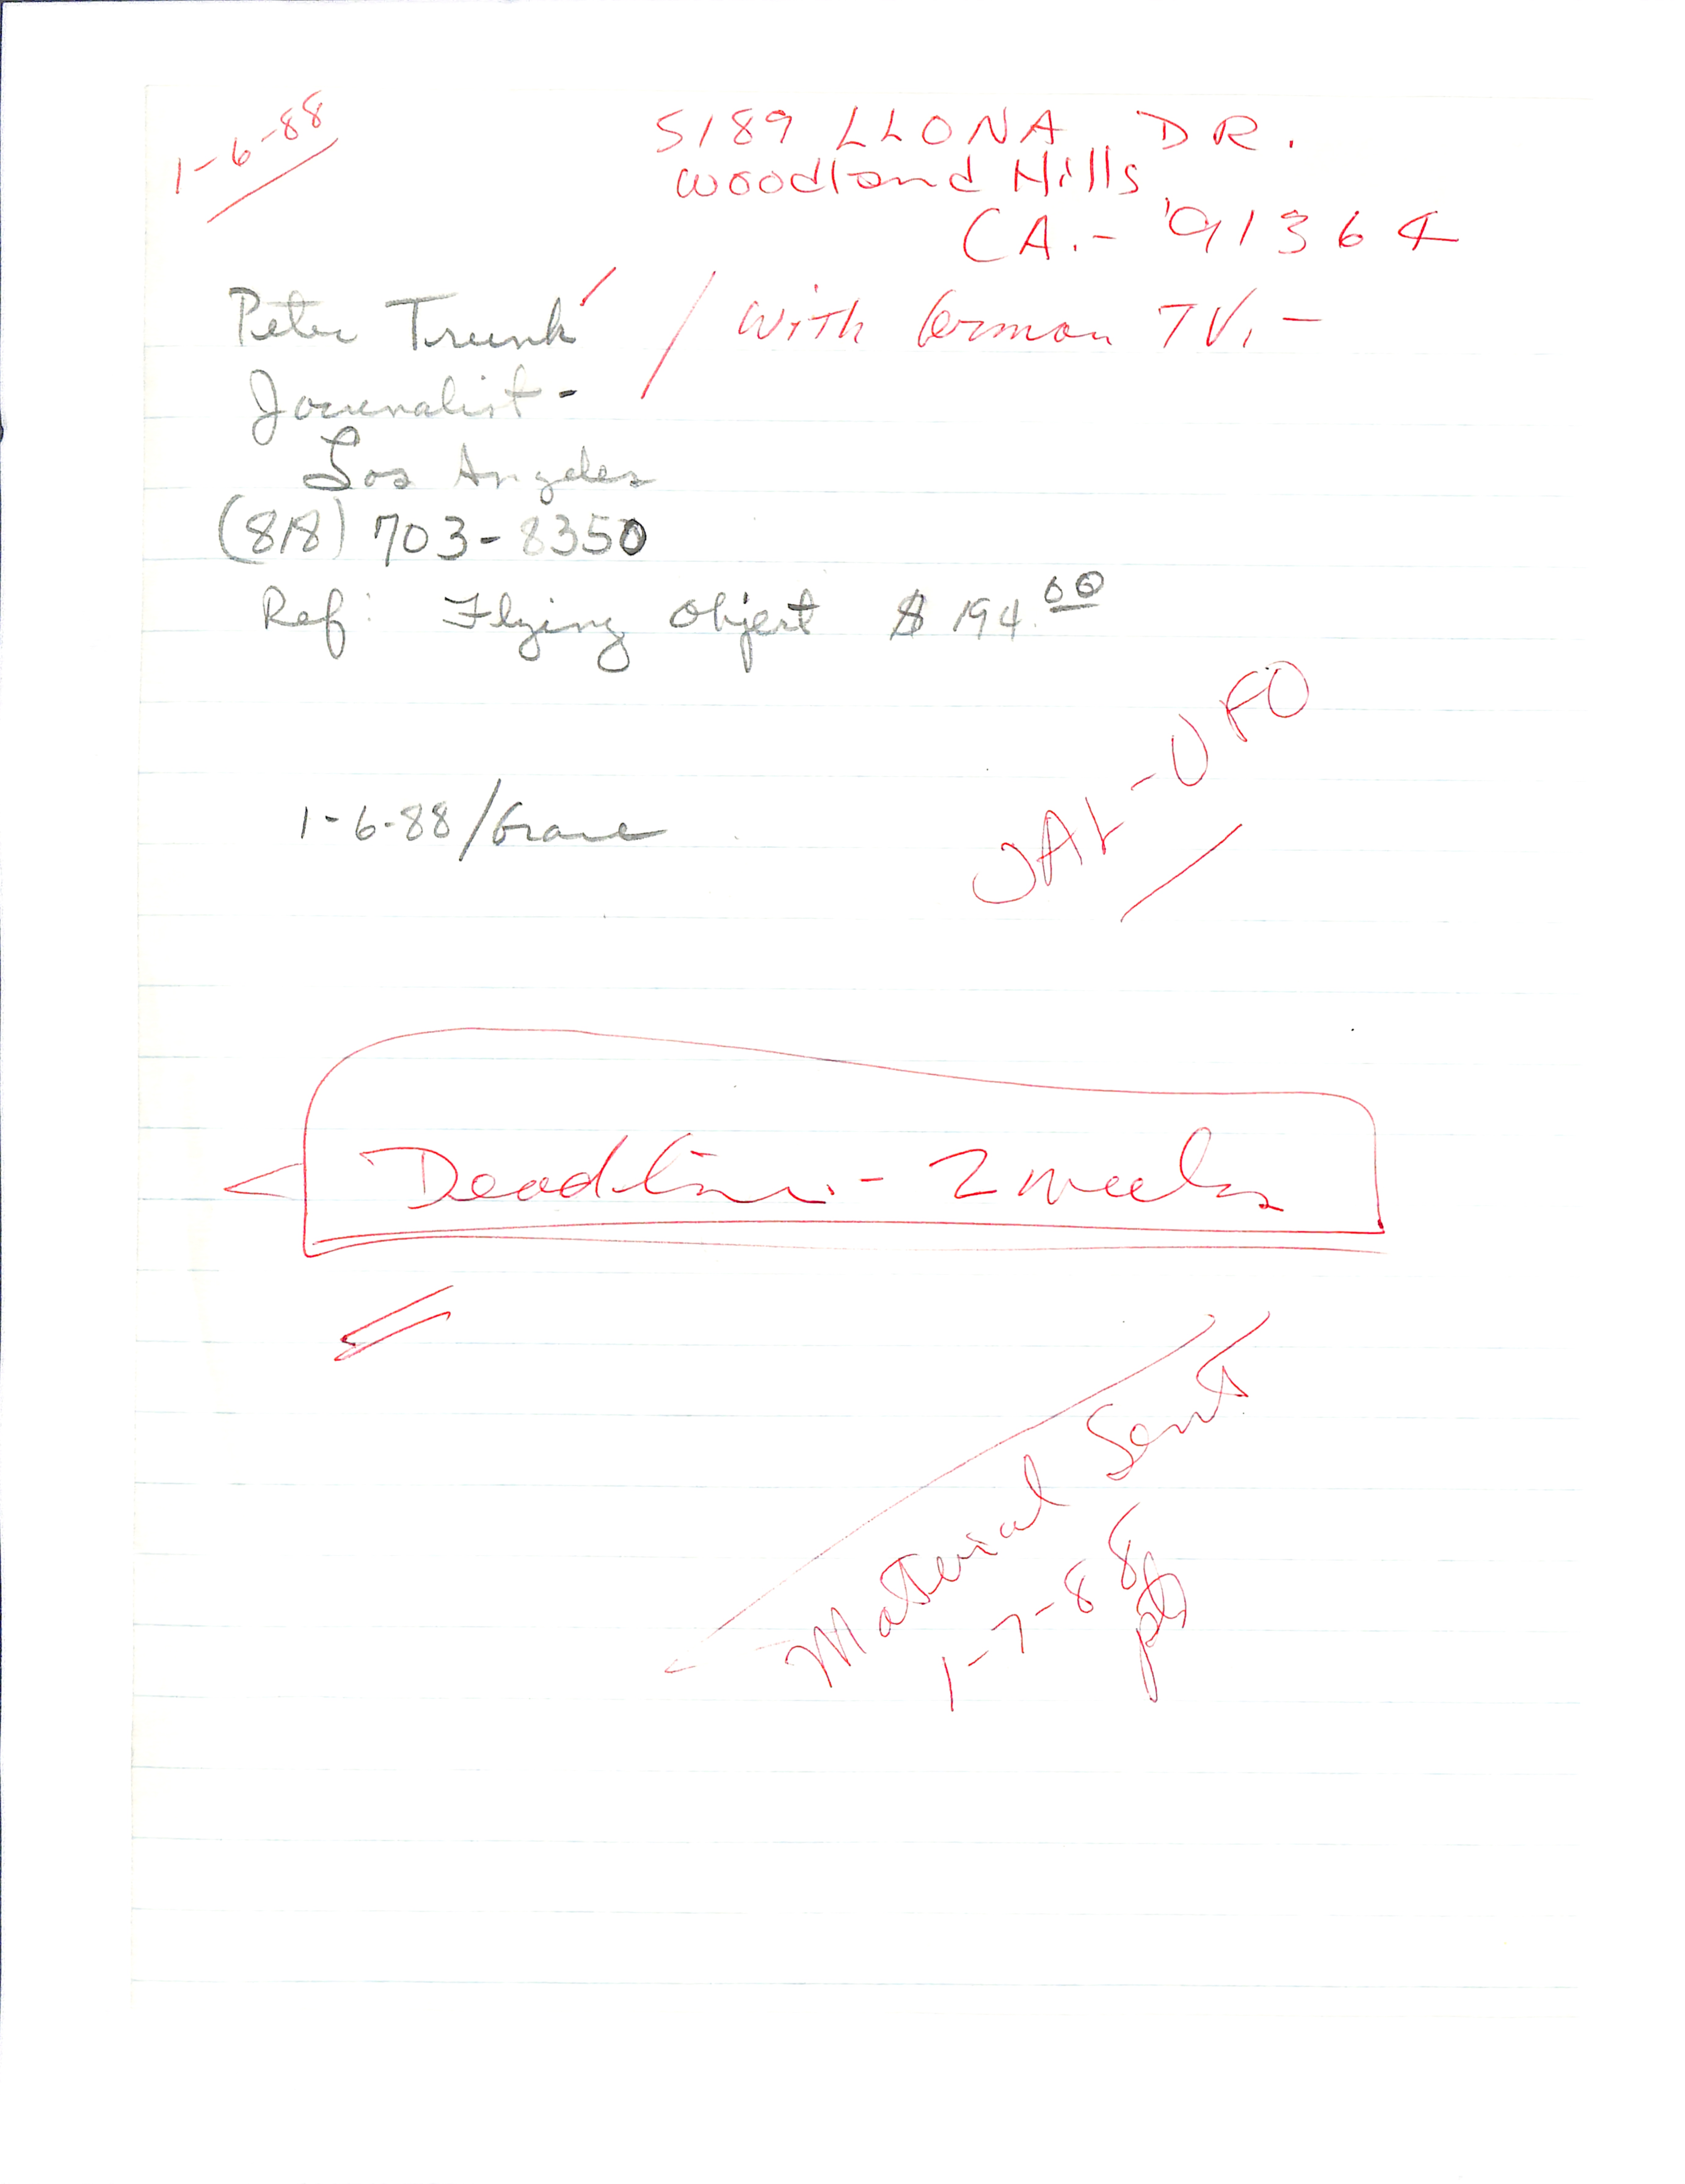 1-6-88
5189 LLONA DR.
Woodland Hills
CA. - 91364
Peter Trunk / with German TV. -
Journalist -
Los Angeles
(818) 703-8350
Ref: Flying Object $194.00
JAL-UFO
1-6-88/Grace
Deadline. - 2 weeks
Material Sent
1-7-88